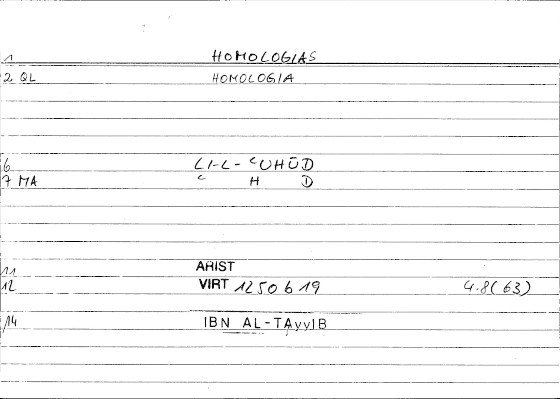 1 HOMOLOGIAS
2 QL HOMOLOGIA
6 LI-L-ʿUHŪD
7 MA ʿ H D
11 ARIST
12 VIRT 1250 b 19 4.8(63)
14 IBN AL-TAyyIB